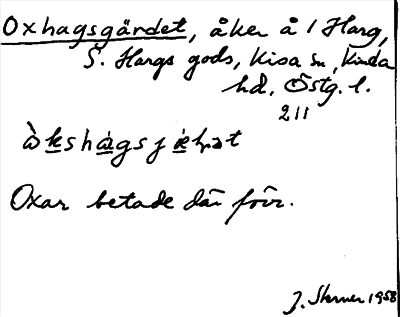 Oxhagsgärdet, åker å 1 Harg,
S. Hargs gods, Kisa sn, Kinda
hd, Östg. l.
211
Oxar betade där förr.
1958